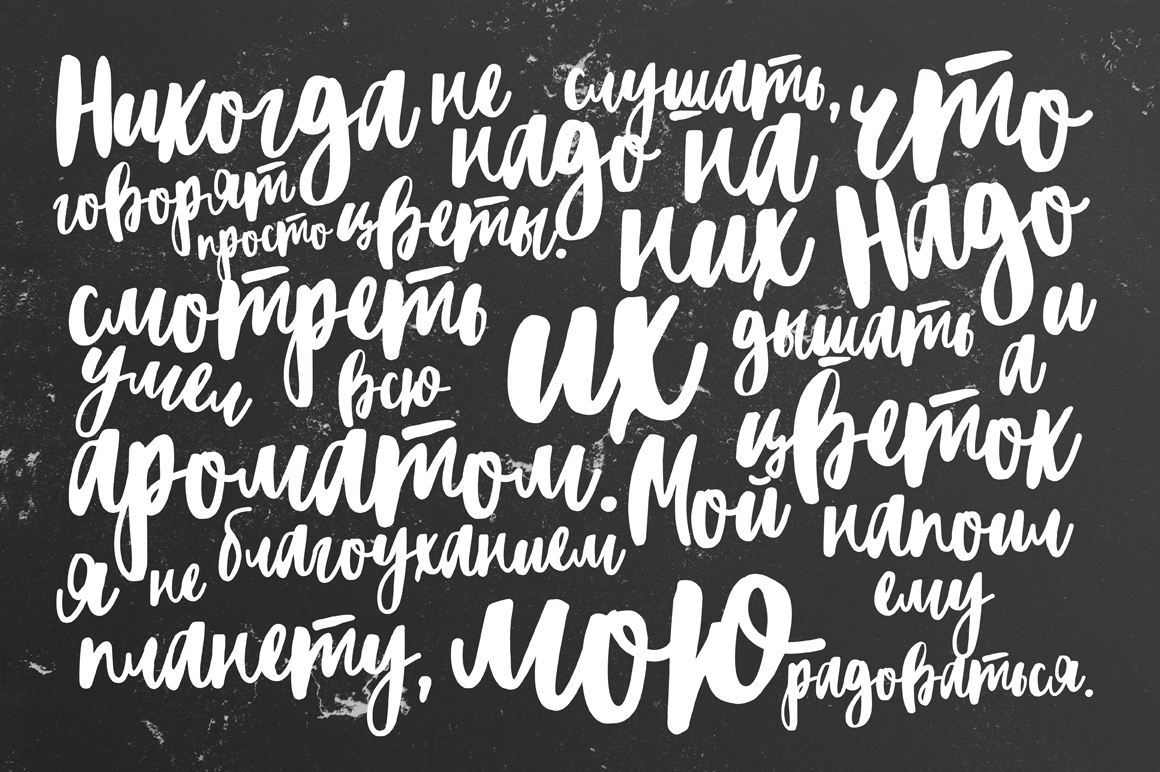 Никогда не слушать, что
говорят надо на
просто цветы. них Надо
смотреть их дышать и
умел всю а
ароматом. Мой цветок
Я не благоуханием напоил
ему
планету, мою радоваться.